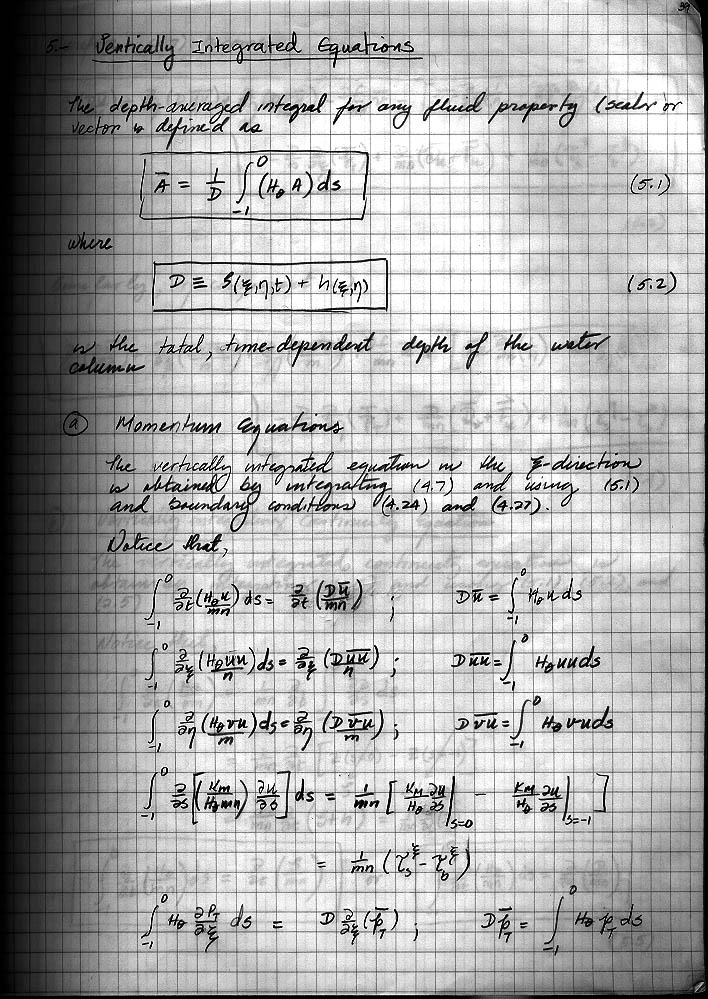 39
5.- Vertically Integrated Equations
The depth-averaged integral for any fluid property (scalar or
vector is defined as
Ā = 1/D ∫_{-1}^{0} (H_θ A) ds (5.1)
where
D ≡ ζ(ξ,η,t) + h(ξ,η) (5.2)
is the total, time-dependent depth of the water
column
(a) Momentum Equations
The vertically integrated equation in the ξ-direction
is obtained by integrating (4.7) and using (5.1)
and boundary conditions (4.24) and (4.27).
Notice that,
∫_{-1}^{0} ∂/∂t (H_θ u/mn) ds = ∂/∂t (D ū/mn) ; D ū = ∫_{-1}^{0} H_θ u ds
∫_{-1}^{0} ∂/∂ξ (H_θ uu/n) ds = ∂/∂ξ (D \overline{uu}/n) ; D \overline{uu} = ∫_{-1}^{0} H_θ uu ds
∫_{-1}^{0} ∂/∂η (H_θ vu/m) ds = ∂/∂η (D \overline{vu}/m) ; D \overline{vu} = ∫_{-1}^{0} H_θ vu ds
∫_{-1}^{0} ∂/∂s [(K_M/H_θ mn) ∂u/∂s] ds = 1/mn [K_M/H_θ ∂u/∂s |_{s=0} - K_M/H_θ ∂u/∂s |_{s=-1}]
= 1/mn (τ_s^ξ - τ_b^ξ)
∫_{-1}^{0} H_θ ∂P_T/∂ξ ds = D ∂/∂ξ (\overline{p}_T) ; D \overline{p}_T = ∫_{-1}^{0} H_θ p_T ds